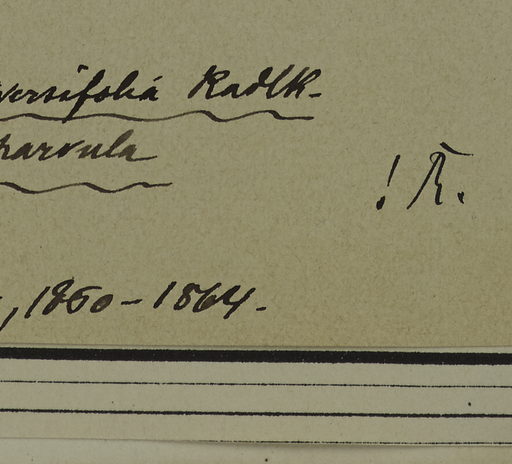 versifolia Radlk.
parvula
! R.
, 1860-1864.